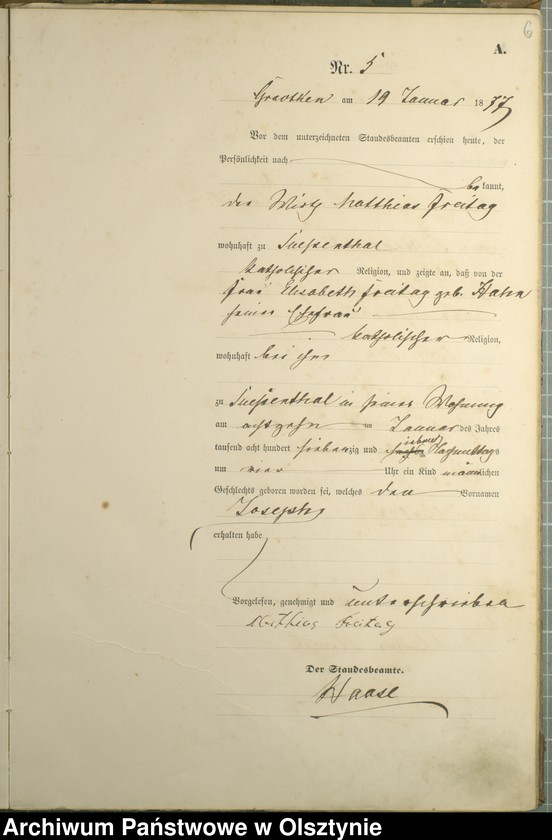 6
A.
Nr. 5
am 19 Januar 1877
Vor dem unterzeichneten Standesbeamten erschien heute, der
Persönlichkeit nach
bekannt,
der Wirth Matthias Freitag
wohnhaft zu
katholischer Religion, und zeigte an, daß von der
Frau Elisabeth Freitag geb. Hahn
seiner Ehefrau
katholischer Religion,
wohnhaft bei ihm
zu in seiner Wohnung
am achtzehn ten Januar des Jahres
tausend acht hundert siebenzig und sieben Nachmittags
um vier Uhr ein Kind männlichen
Geschlechts geboren worden sei, welches den Vornamen
Joseph
erhalten habe
Vorgelesen, genehmigt und unterschrieben
Mathias Freitag
Der Standesbeamte.
Haase
Archiwum Państwowe w Olsztynie